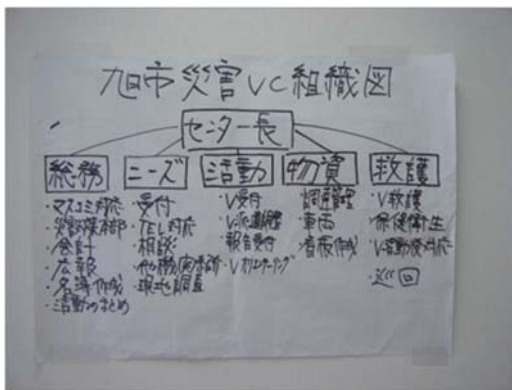 旭市災害VC組織図
センター長
総務
・マスコミ対応
・災害対策本部
・会計
・広報
・名簿作成
・活動のまとめ
ニーズ
・受付
・TEL対応
・相談
・現地調査
活動
・V受付
・報告受付
・Vオリエンテーリング
物資
・車両
・看板作成
救護
・V救護
・保健衛生
・巡回